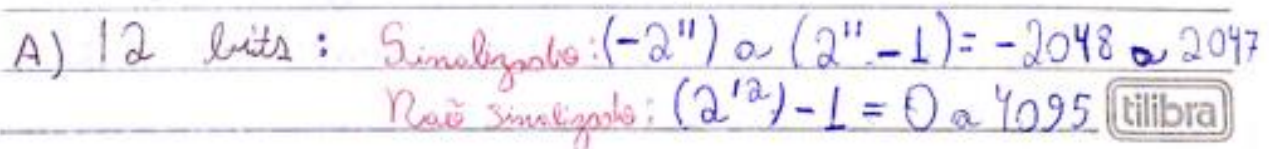 A) 12 bits : Sinalizado: (-2¹¹) a (2¹¹-1) = -2048 a 2047
Não sinalizado: (2¹²)-1 = 0 a 4095 tilibra